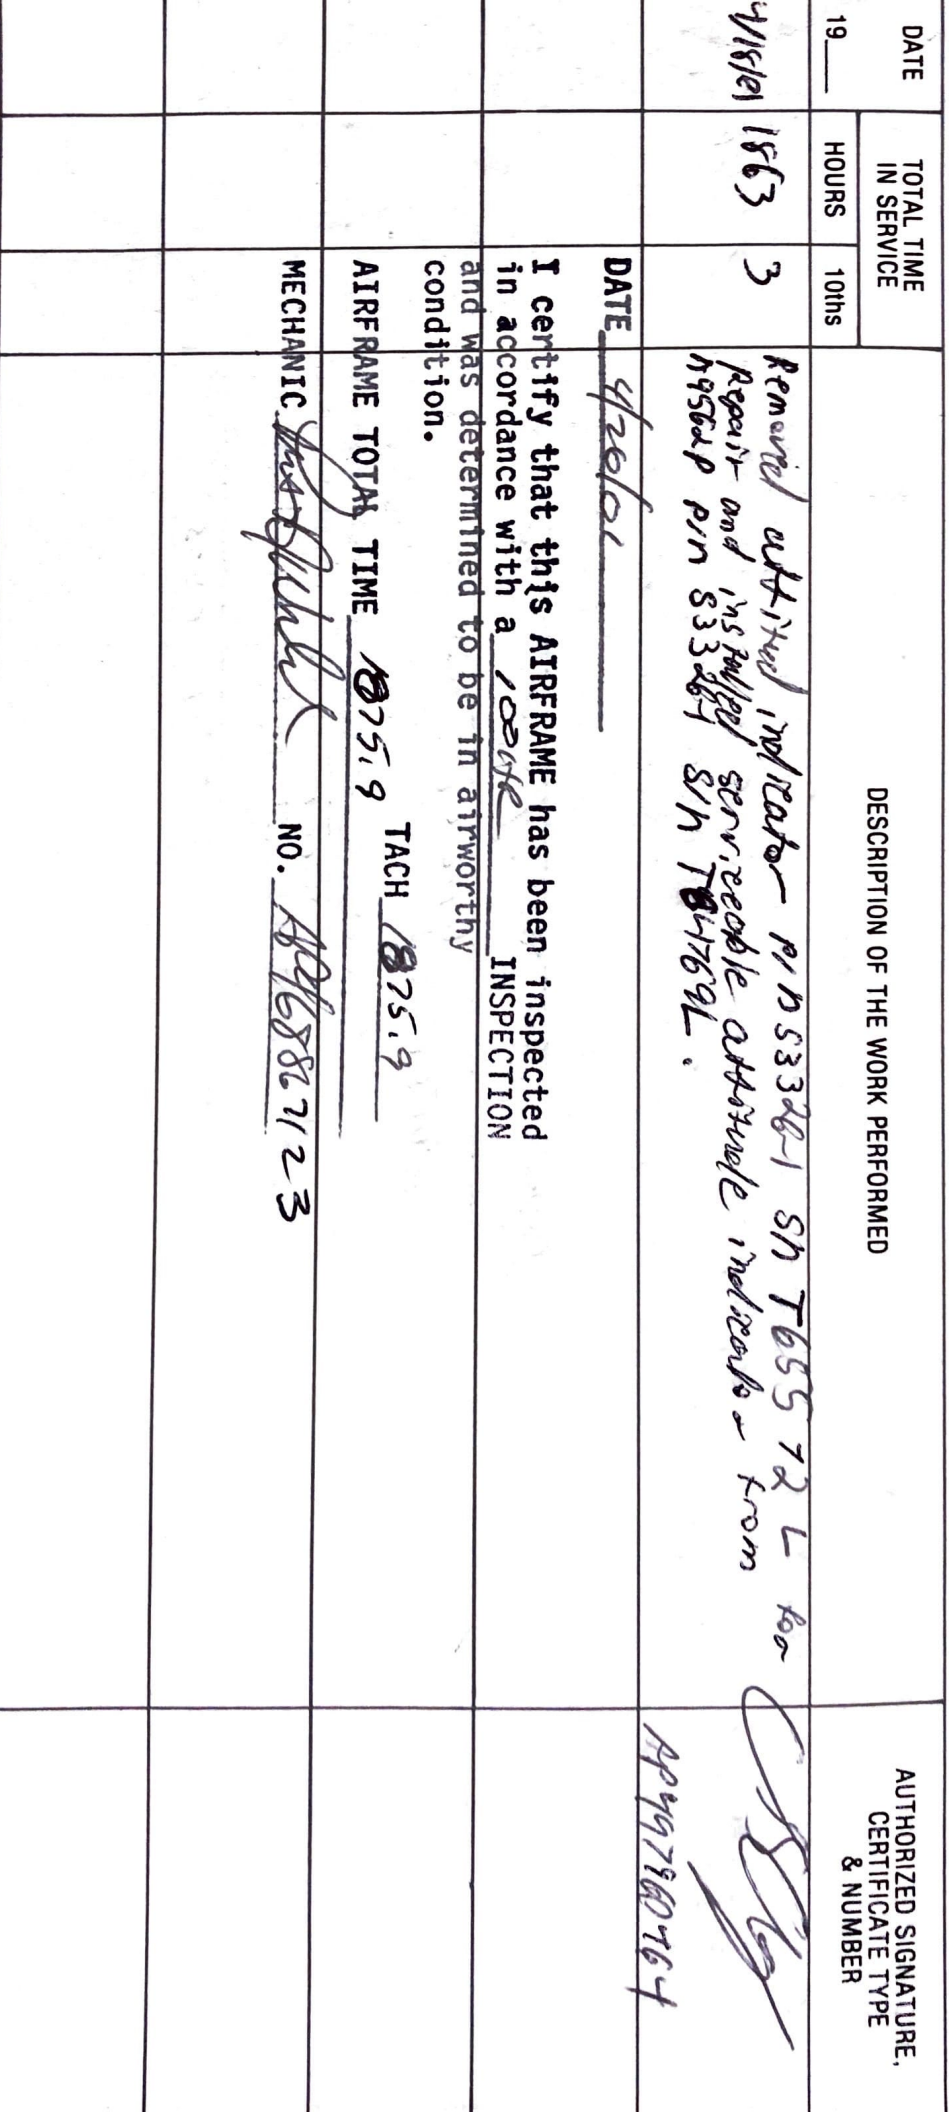 DATE
19__
TOTAL TIME
IN SERVICE
HOURS
10ths
DESCRIPTION OF THE WORK PERFORMED
AUTHORIZED SIGNATURE,
CERTIFICATE TYPE
& NUMBER
4/18/01 1863 3
Removed attitud indicator P/N S3326-1 SN T65572L for
Repair and installed serviceable attitude indicator from
P/N S3326-1 S/N
AP497960764
DATE 4/20/01
I certify that this AIRFRAME has been inspected
in accordance with a 100HR INSPECTION
and was determined to be in airworthy
condition.
TACH 1875.9
AIRFRAME TOTAL TIME 1875.9
MECHANIC NO.